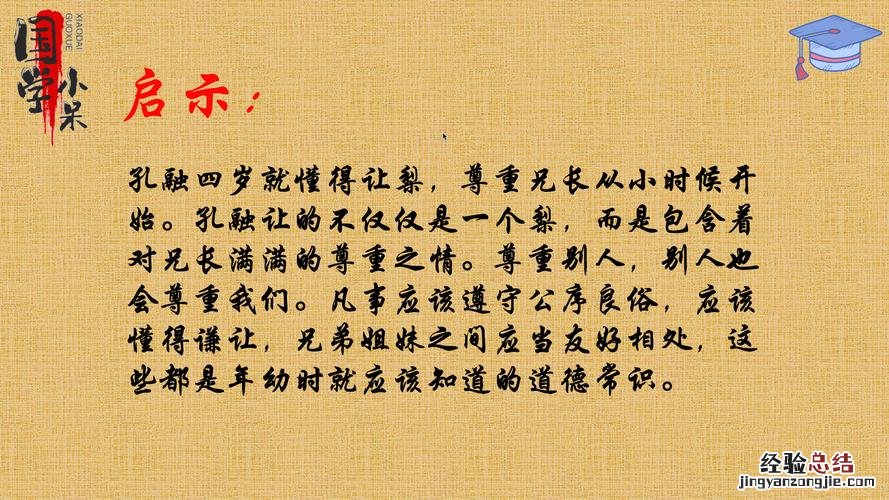 国学小呆
XIAODAI
GUOXUE
启示：
孔融四岁就懂得让梨，尊重兄长从小时候开
始。孔融让的不仅仅是一个梨，而是包含着
对兄长满满的尊重之情。尊重别人，别人也
会尊重我们。凡事应该遵守公序良俗，应该
懂得谦让，兄弟姐妹之间应当友好相处，这
些都是年幼时就应该知道的道德常识。
经验总结
jingyanzongjie.com